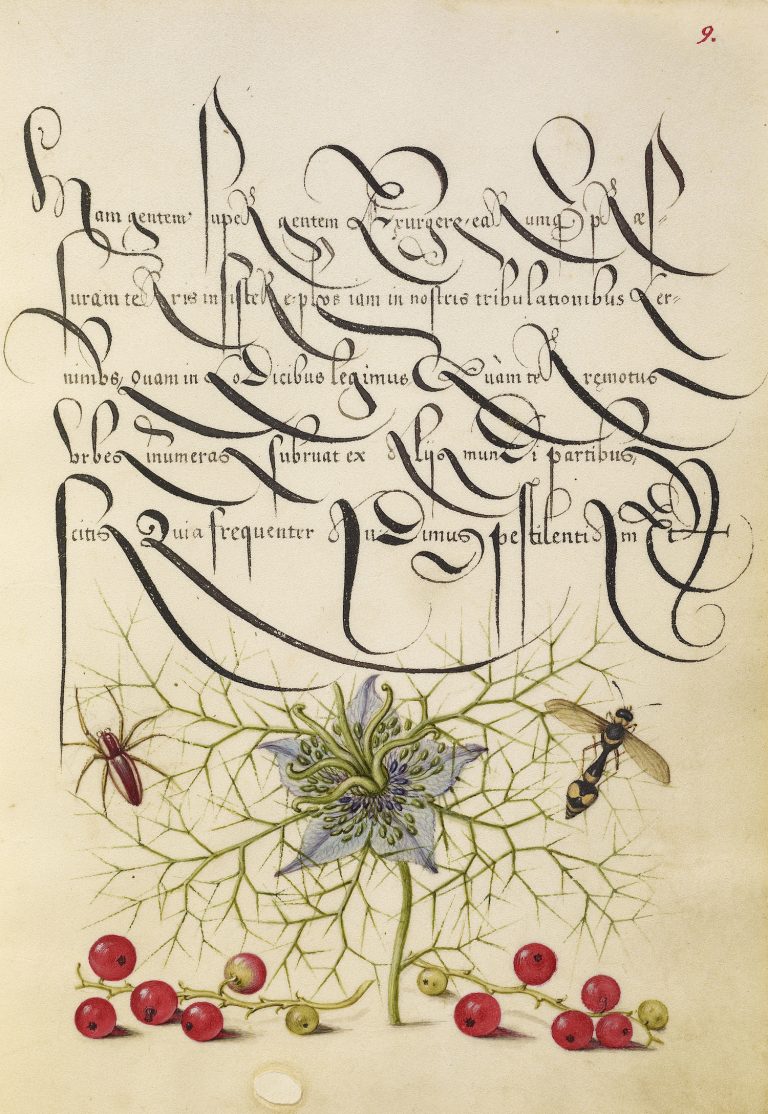 9.
Nam gentem super gentem Exurgere, earumq; præs=
suram terris insistere plus iam in nostris tribulationibus Cer=
nimus, Quam in Codicibus legimus, Quàm terręmotus
Vrbes inumeras subruat ex alijs mundi partibus,
scitis Quia frequenter audimus pestilentiam Et